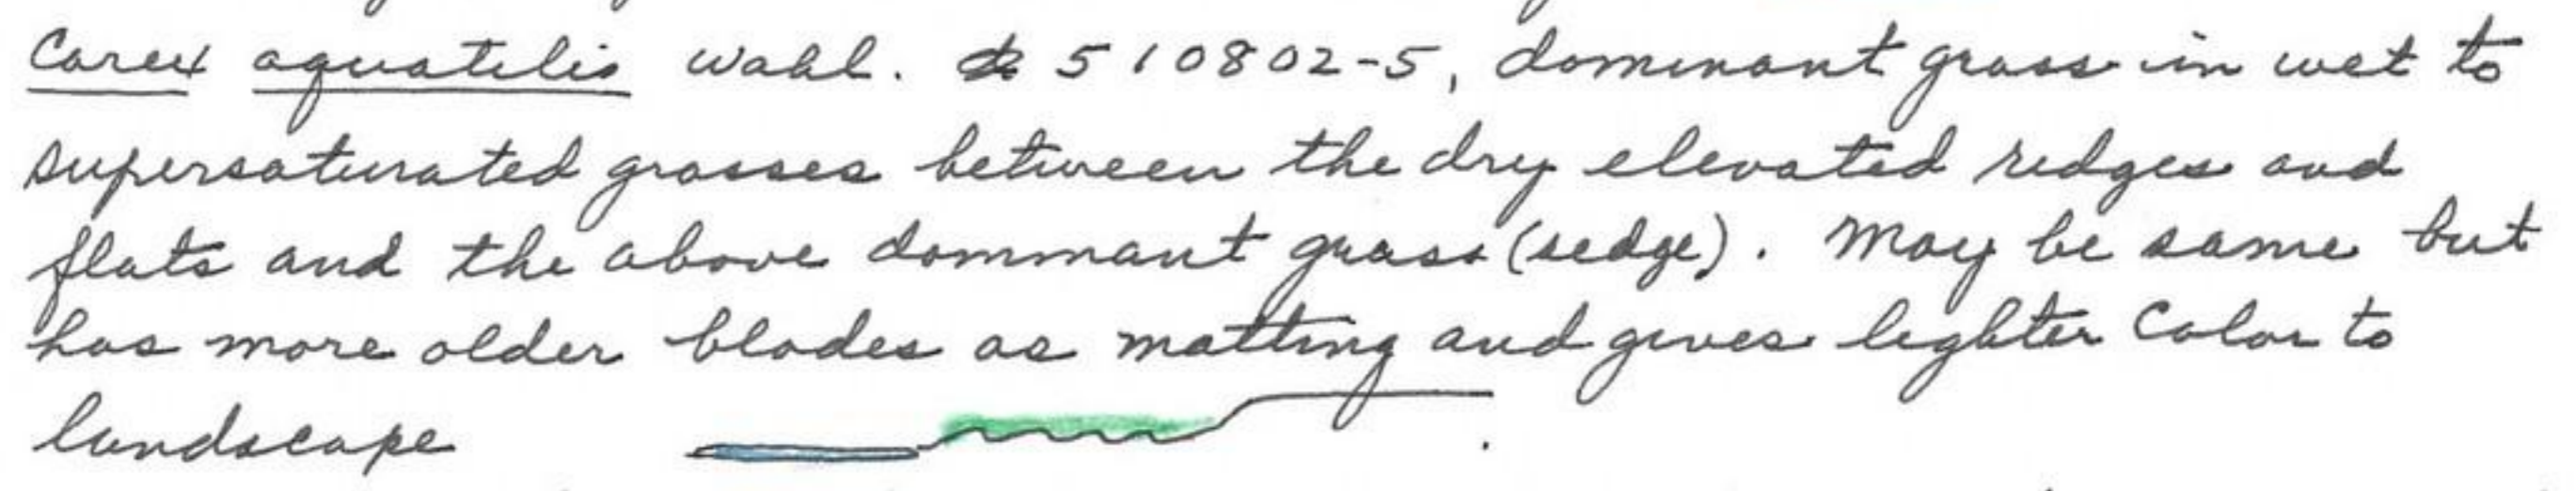 Carex aquatilis Wahl. 510802-5, dominant grass in wet to
supersaturated grasses between the dry elevated ridges and
flats and the above dominant grass (sedge). May be same but
has more older blades as matting and gives lighter color to
landscape